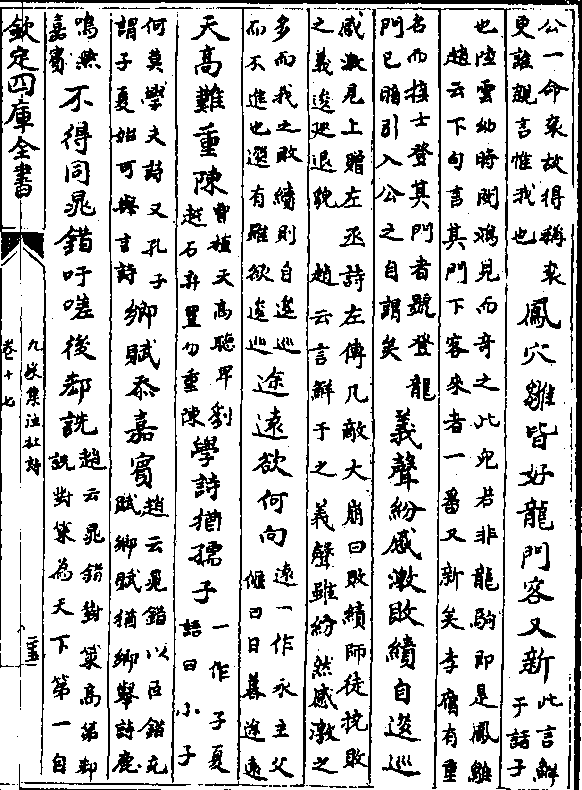 公一命袞故得稱袞
更誰覿言惟我也
鳳穴雛皆好龍門客又新
此言鮮
于諸子
也陸雲幼時閔鴻見而奇之此兒若非龍駒即是鳳雛
趙云下句言其門下客來者一番又新矣李膺有重
名而接士登其門者號登龍
門已暗引入公之自謂矣
義聲紛感激敗績自逡巡
感激見上贈左丞詩左傳凡敵大崩曰敗績師徒撓敗
之義逡廵退貌 趙云言鮮于之義聲雖紛然感激之
多而我之敗績則自逡巡
而不進也選有雖欲逡巡
途遠欲何向
遠一作永主父
偃曰日暮途遠
天高難重陳
曹植天高聽卑劉
越石弃置勿重陳
學詩猶孺子
一作子夏
語曰小子
何莫學夫詩又孔子
謂子夏始可與言詩
鄉賦忝嘉賓
趙云晁錯以臣錯充
賦鄉賦猶鄉舉詩鹿
鳴燕
嘉賓
不得同晁錯吁嗟後郤詵
趙云晁錯對策高第郤
詵對策為天下第一自
欽定四庫全書
九家集注杜詩
卷十七
二十五